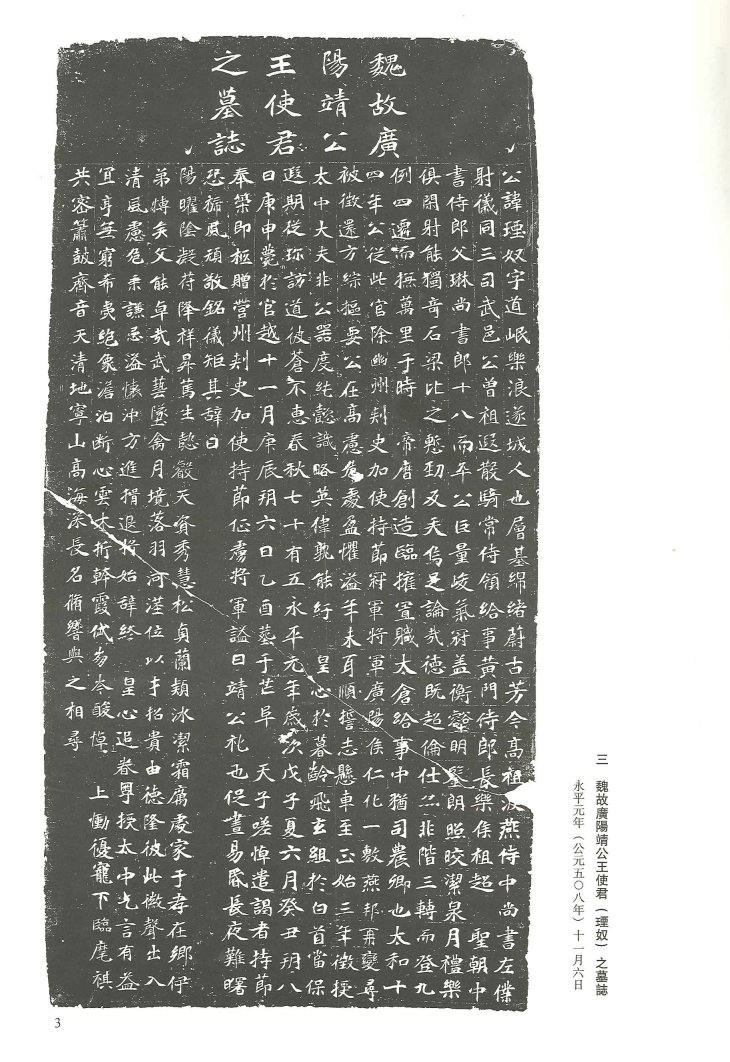 三　魏故廣陽靖公王使君（理奴）之墓誌
永平元年（公元五〇八年）十一月六日
魏故廣
陽靖公
王使君
之墓誌
公諱理奴字道岷樂浪遂城人也層基綿緒蔚古芳今高祖波燕侍中尚書左僕
射儀同三司武邑公曾祖遐散騎常侍領給事黃門侍郎長樂侯祖超　聖朝中
書侍郎父琳尚書郎十八而卒公巨量峻氣冠蓋衡壑明鑒朗照皎潔泉月禮樂
俱閑射能獨奇石梁比之慙勁及天烏足論哉德既超倫仕亦非階三轉而登九
例四遷而撫萬里于時　帝曆創造臨擁置職太倉給事中猶司農卿也太和十
四年公從此官除幽州刺史加使持節冠軍將軍廣陽侯仁化一敷燕邦再變尋
被徵還方綜樞要公在高慮危處盈懼溢年未耳順誓志懸車至正始三年徵授
太中大夫非公器度純懿識略英偉孰能紆　皇心於暮齡飛玄組於白首當保
遐期從珎訪道彼蒼不惠春秋七十有五永平元年歲次戊子夏六月癸丑朔八
日庚申薨於官越十一月庚辰朔六日乙酉葬于芒阜　天子嗟悼遣謁者持節
奉策即柩贈營州刺史加使持節征虜將軍謚曰靖公礼也促晝易昏長夜難曙
恐風頑敬銘儀矩其辭曰
陽曜陰凝苻降祥昇篤生懿天資秀慧松貞蘭穎冰潔霜厲處家于孝在鄉伊
弟轉矣文能卓哉武藝墜禽月境落羽河漢位以才招貴由德隆彼此徽聲出入
清風慮危秉謙忌溢懷沖方進揖退將始辭終　皇心追眷舉授太中允言有益
宜享無窮希夷絕象澹泊斷心雲木折幹霞岑酸悼　上慟優寵下臨麾祺
共密簫鼓齊音天清地寧山高海深長名脩響與之相尋
3